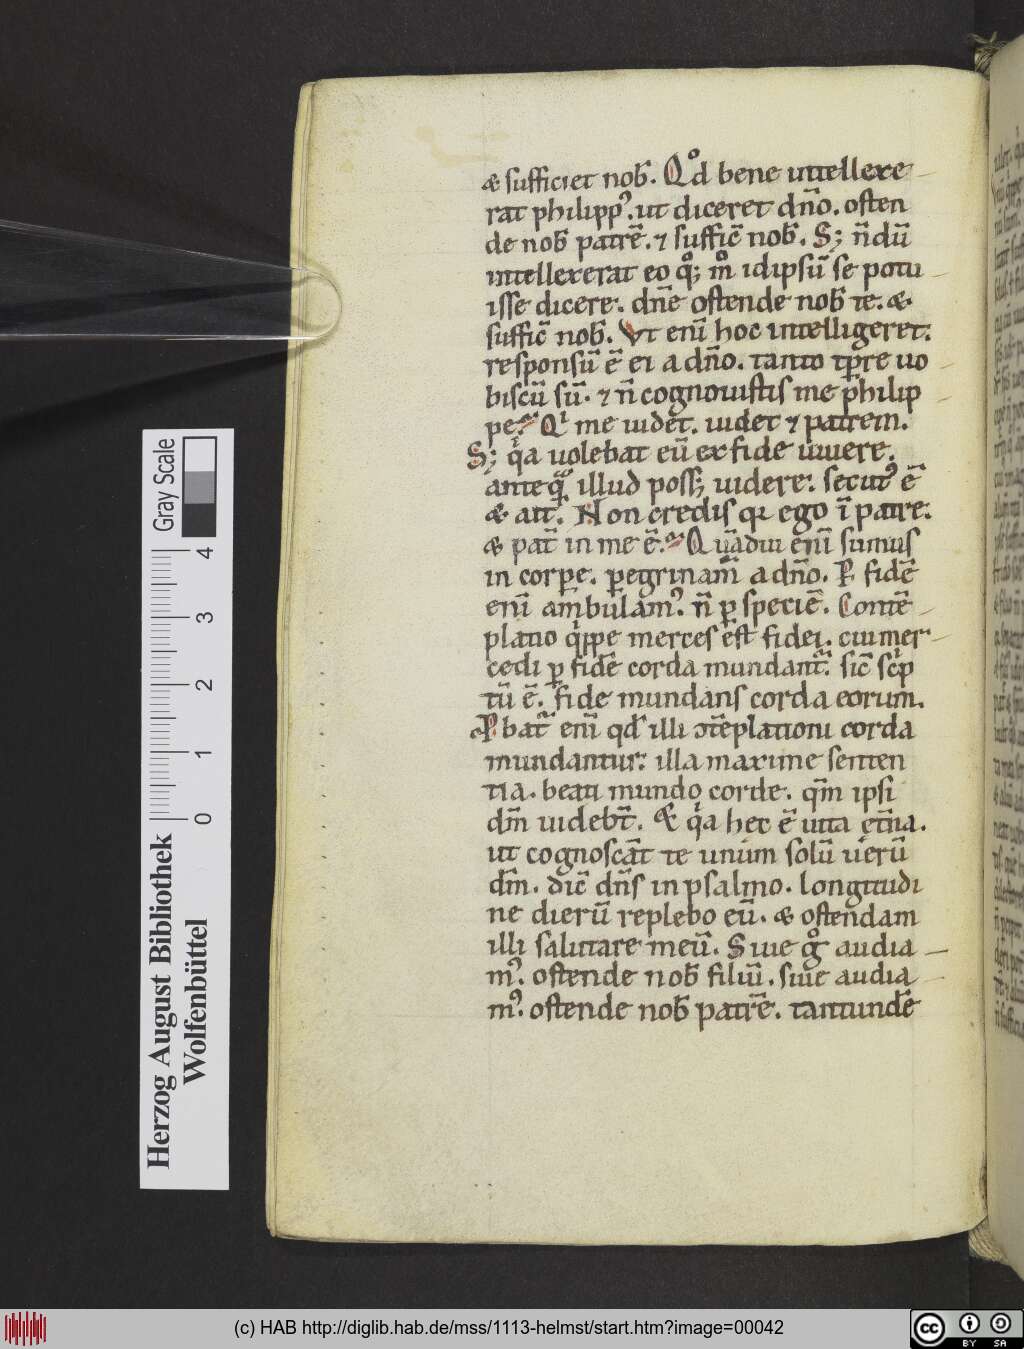 & sufficiet nob̄. Qͦd bene intellexe
rat philipp᾽. ut diceret dn̄o. osten
de nob̄ patrē. ⁊ suffic̄ nob̄. S; n̄dū
intellexerat eo qͦ; mͦ idipsū se potu
isse dicere. dn̄e ostende nob̄ te. &
suffic̄ nob̄. Vt enī hoc intelligeret.
responsū ē ei a dn̄o. tanto tp̄re uo
biscū sū. ⁊ n̄ cognouistis me philip
pe? Qⁱ me uidet. uidet ⁊ patrem.
S; qⁱa uolebat eū ex fide uiuere.
anteqͣ̄ illud poss; uidere. secut᾽ ē
& ait. Non credis qı ego ī patre.
& pat̄ in me ē? Quādiu enī sumus
in corꝑe. ꝑegrinam̄ a dn̄o. P̱ fidē
enī ambulam᾽. n̄ ꝑ speciē. Contē
platio qⁱppe merces ēst fidei. cui mer
cedi ꝑ fidē corda mundant̄. sic̄ scⁱp
tū ē. fide mundans corda eorum.
P̱bat̄ enī qd̄ illi ↄtēplationi corda
mundantur. illa maxime senten
tia. beati mundo corde. qm̄ ipsi
dm̄ uidebt̄. & qⁱa hec ē uita et̄na.
ut cognoscāt te unum solū uerū
dm̄. dic̄ dn̄s in psalmo. longitudi
ne dierū replebo eū. & ostendam
illi salutare meū. Siue gͦ audia
m᾽. ostende nob̄ filiū. siue audia
m᾽. ostende nob̄ patrē. tantundē
Gray Scale
4 3 2 1 0
Herzog August Bibliothek
Wolfenbüttel
(c) HAB http://diglib.hab.de/mss/1113-helmst/start.htm?image=00042
cc BY SA